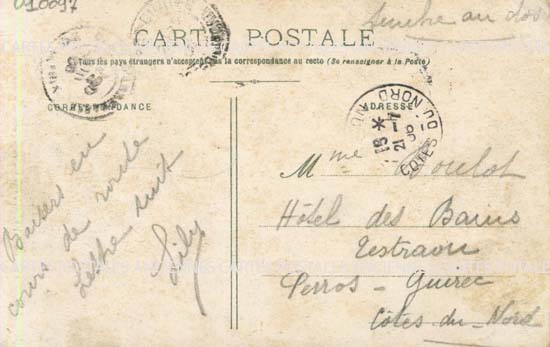 010097
CARTE POSTALE
Tous les pays étrangers n'acceptent pas la correspondance au recto (Se renseigner à la Poste)
CORRESPONDANCE
Baisers en
cours de route
Lettre suit
Lily
ADRESSE
18 *
21 - 7
08
COTES DU NORD
Mme Boulot
Hôtel des Bains
Trestraou
Perros - Guirec
Côtes du Nord